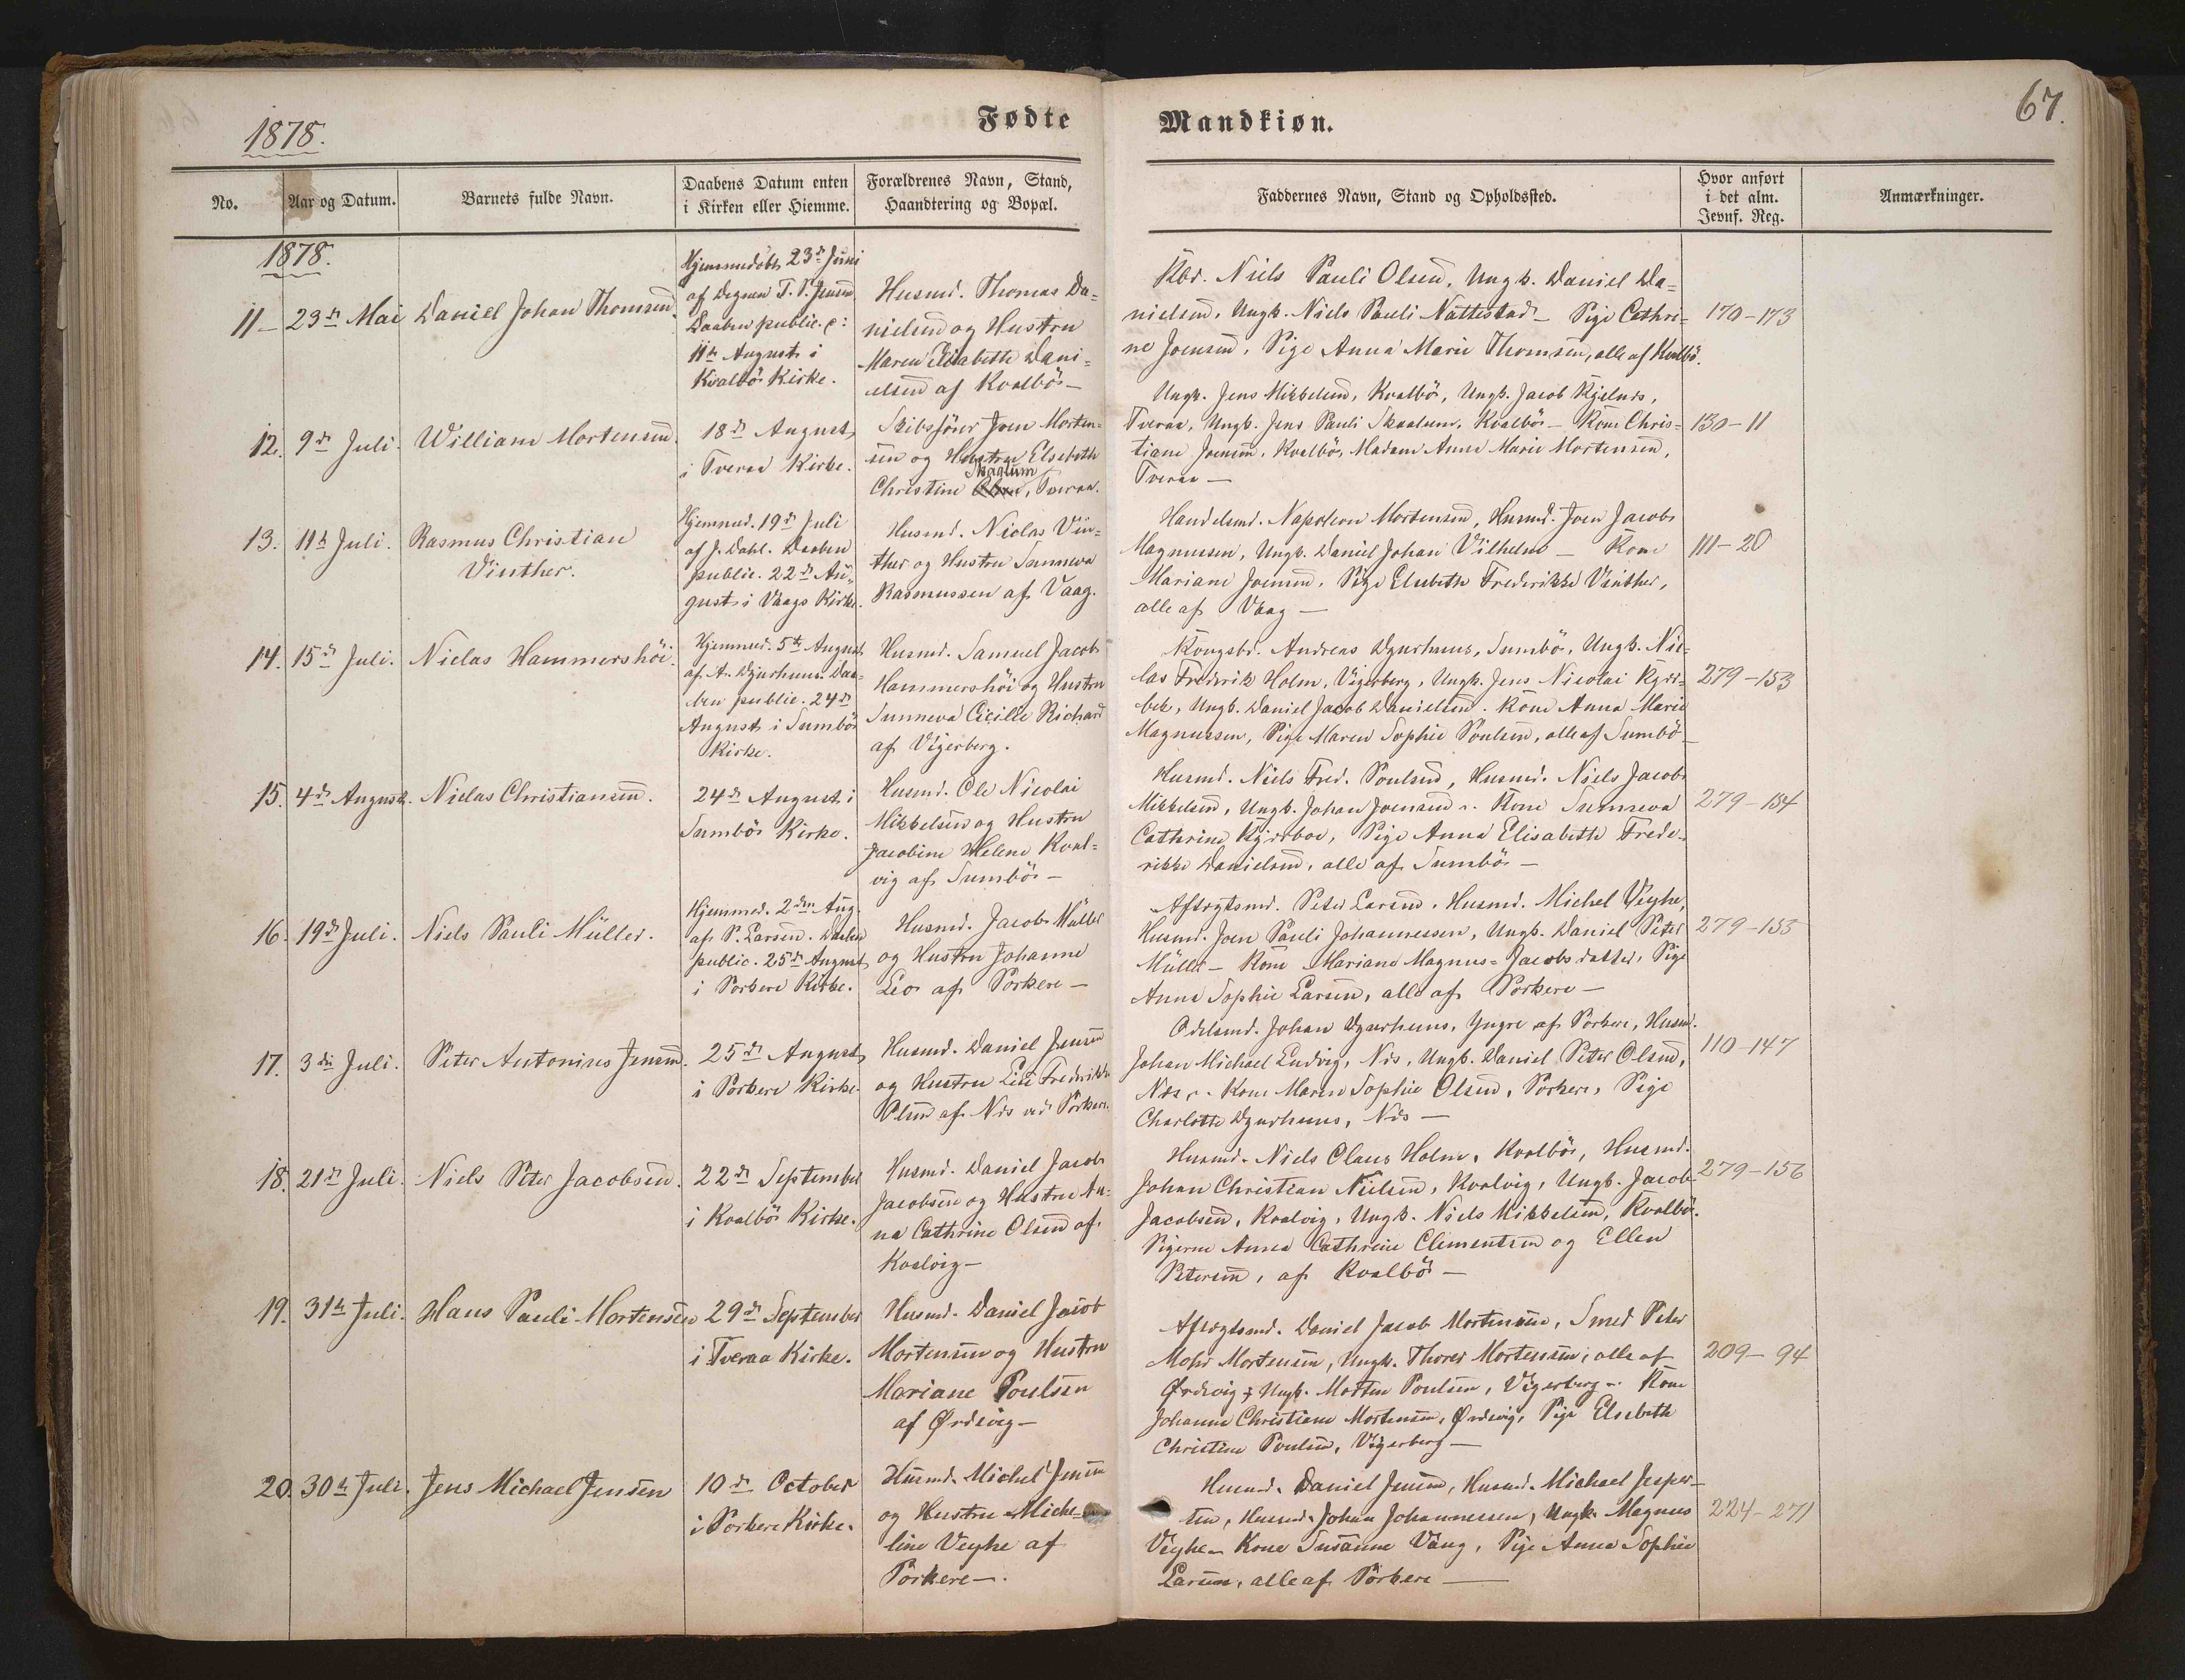 1878.
Fødte
Mandkiøn.
67.
No.
Aar og Datum.
Barnets fulde Navn.
Daabens Datum enten
i Kirken eller Hiemme.
Forældrenes Navn, Stand,
Haandtering og Bopæl.
Faddernes Navn, Stand og Opholdssted.
Hvor anført
i det alm.
Jevnf. Reg.
Anmærkninger.
1878.
11 – 23d Mai
Daniel Johan Thomsen.
Hjemmedöbt 23d Juni
af Degnen T. P. Jensen
Daaben public. e:
11te August i
Kvalbö Kirke.
Husmd. Thomas Da=
nielsen og Hustru
Maren Elisabeth Dani=
elsen af Kvalbö –
Kbr. Niels Pauli Olsen, Ungk. Daniel Da=
nielsen, Ungk. Niels Pauli Nattestad – Pige Cathri=
ne Joensen, Pige Anna Marie Thomsen, alle af Kvalbö.
170 – 173
12. 9de Juli.
William Mortensen.
18de August
i Tveraa Kirke.
Skibsförer Joen Morten=
sen og Hustru Elsebeth
Skaalum
Christine Olsen, Tveraa.
Ungk. Jens Mikkelsen, Kvalbö, Ungk. Jacob Kjelnes,
Tveraa, Ungk. Jens Pauli Skaalum, Kvalbö – Kone Chris=
tiane Joensen, Kvalbö, Madam Anne Marie Mortensen,
Tveraa –
130 – 11
13. 11te Juli.
Rasmus Christian
Vinther.
Hjemmed. 19de Juli
af J. Dahl. Daaben
public. 22de Au=
gust i Vaags Kirke.
Husmd. Niclas Vin=
ther og Hustru Sunneva
Rasmussen af Vaag.
Handelsmd. Napoleon Mortensen, Husmd. Joen Jacob
Magnussen, Ungk. Daniel Johan Vilhelm – Kone
Mariane Joensen, Pige Elsebeth Frederikke Vinther,
alle af Vaag –
111 – 20
14. 15de Juli.
Niclas Hammershöi.
Hjemmed. 5te August
af A. Dyurhuus. Daa=
ben public. 24de
August i Sumbö
Kirke.
Husmd. Samuel Jacob
Hammershöi og Hustru
Sunneva Cicilie Richard
af Vigerberg.
Kongsbd. Andreas Dyurhuus, Sumbö, Ungk. Nic=
las Frederik Holm, Vigerberg, Ungk. Jens Nicolai Kjær=
bek, Ungk. Daniel Jacob Danielsen. Kone Anna Marie
Magnussen, Pige Maren Sophie Poulsen, alle af Sumbö –
279 – 153
15. 4de August.
Niclas Christiansen.
24de August i
Sumbö Kirke.
Husmd. Ole Nicolai
Mikkelsen og Hustru
Jacobine Helene Kval=
vig af Sumbö –
Husmd. Niels Fred. Poulsen, Husmd. Niels Jacob
Mikkelsen, Ungk. Johan Joensen – Kone Sunneva
Cathrine Kjærboe, Pige Anna Elisabeth Frede=
rikke Danielsen, alle af Sumbö –
279 – 154
16. 19de Juli.
Niels Pauli Müller.
Hjemmed. 2den Aug.
af P. Larsen. Daaben
public. 25de August
i Porkere Kirke.
Husmd. Jacob Müller
og Hustru Johanne
Leo af Porkere –
Aftægtsmd. Peter Larsen, Husmd. Michel Veyhe,
Husmd. Joen Pauli Johannessen, Ungk. Daniel Peter
Müller – Kone Mariane Magnus=Jacobsdatter, Pige
Anne Sophie Larsen, alle af Porkere –
279 – 155
17. 3die Juli.
Peter Antonius Jensen.
25de August
i Porkere Kirke.
Husmd. Daniel Jensen
og Hustru Lise Frederikke
Olsen af Nes ved Porkere.
Odelsmd. Johan Dyurhuus, Yngre af Porkere, Husmd.
Johan Michael Ludvig, Nes, Ungk. Daniel Peter Olsen,
Nes – Kone Maren Sophie Olsen, Porkere, Pige
Charlotte Dyurhuus, Nes –
110 – 147
18. 21de Juli.
Niels Peter Jacobsen.
22de September
i Kvalbö Kirke.
Husmd. Daniel Jacob
Jacobsen og Hustru An=
na Cathrine Olsen af
Kvalvig –
Husmd. Niels Claus Holm, Kvalbö, Husmd.
Johan Christian Nielsen, Kvalvig, Ungk. Jacob
Jacobsen, Kvalvig, Ungk. Niels Mikkelsen, Kvalbö.
Pigerne Anna Cathrine Clementsen og Ellen
Petersen, af Kvalbö –
279 – 156
19. 31te Juli.
Hans Pauli Mortensen
29de September
i Tveraa Kirke.
Husmd. Daniel Jacob
Mortensen og Hustru
Mariane Poulsen
af Ørdevig –
Aftægtsmd. Daniel Jacob Mortensen, Smed Peter
Mohr Mortensen, Ungk. Thomas Mortensen, alle af
Ørdevig, Ungk. Morten Poulsen, Vigerberg – Kone
Johanne Christiane Mortensen, Ørdevig, Pige Elsebeth
Christine Poulsen, Vigerberg –
209 – 94
20. 30te Juli.
Jens Michael Jensen
10de October
i Porkere Kirke.
Husmd. Michel Jensen
og Hustru Miche=
line Veyhe af
Porkere –
Husmd. Daniel Jensen, Husmd. Michael Jesper=
sen, Husmd. Johan Johannessen, Ungk. Magnus
Veyhe – Kone Susanne Vang, Pige Anna Sophie
Larsen, alle af Porkere –
224 – 271